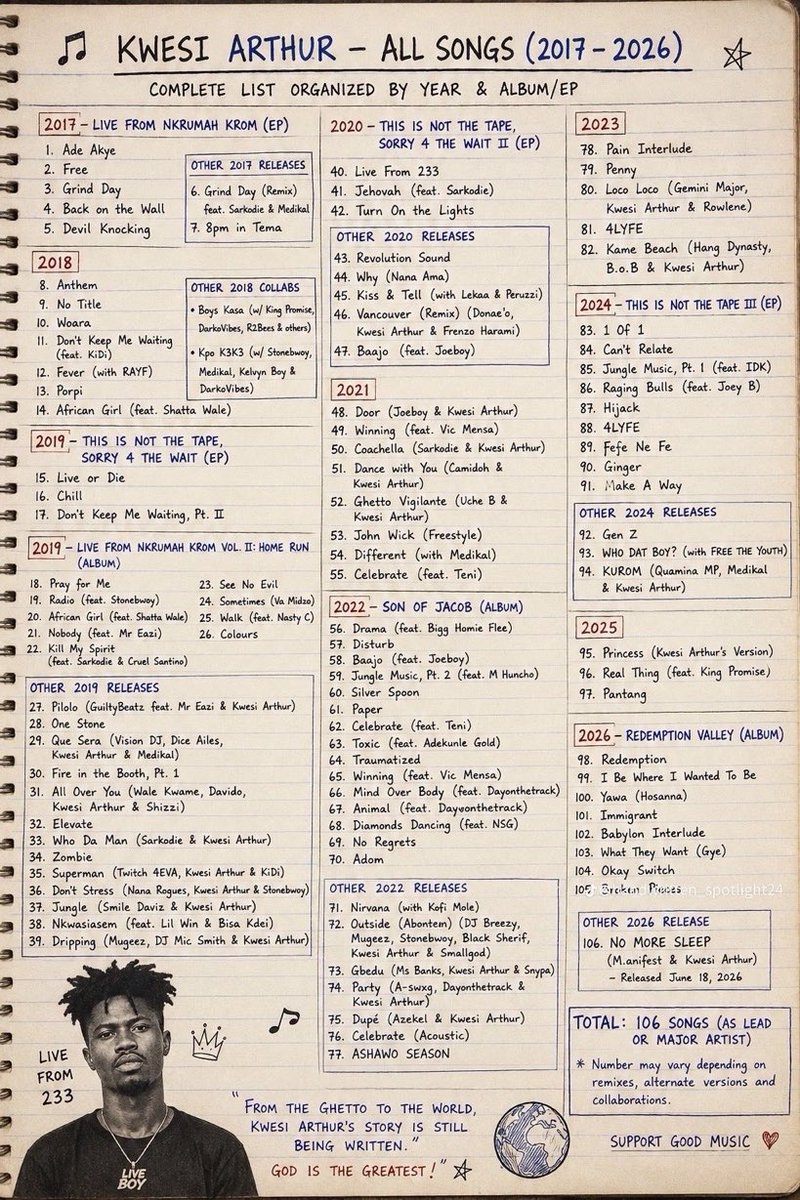 KWESI ARTHUR – ALL SONGS (2017-2026)
COMPLETE LIST ORGANIZED BY YEAR & ALBUM/EP
2017 – LIVE FROM NKRUMAH KROM (EP)
1. Ade Akye
2. Free
3. Grind Day
4. Back on the Wall
5. Devil Knocking
OTHER 2017 RELEASES
6. Grind Day (Remix)
feat. Sarkodie & Medikal
7. 8pm in Tema
2018
8. Anthem
9. No Title
10. Woara
11. Don't Keep Me Waiting
(feat. KiDi)
12. Fever (with RAYF)
13. Porpi
14. African Girl (feat. Shatta Wale)
OTHER 2018 COLLABS
• Boys Kasa (w/ King Promise,
DarkoVibes, R2Bees & others)
• Kpo K3K3 (w/ Stonebwoy,
Medikal, Kelvyn Boy &
DarkoVibes)
2019 – THIS IS NOT THE TAPE,
SORRY 4 THE WAIT (EP)
15. Live or Die
16. Chill
17. Don't Keep Me Waiting, Pt. II
2019 – LIVE FROM NKRUMAH KROM VOL. II: HOME RUN
(ALBUM)
18. Pray for Me
19. Radio (feat. Stonebwoy)
20. African Girl (feat. Shatta Wale)
21. Nobody (feat. Mr Eazi)
22. Kill My Spirit
(feat. Sarkodie & Cruel Santino)
23. See No Evil
24. Sometimes (Va Midzo)
25. Walk (feat. Nasty C)
26. Colours
OTHER 2019 RELEASES
27. Pilolo (GuiltyBeatz feat. Mr Eazi & Kwesi Arthur)
28. One Stone
29. Que Sera (Vision DJ, Dice Ailes,
Kwesi Arthur & Medikal)
30. Fire in the Booth, Pt. 1
31. All Over You (Wale Kwame, Davido,
Kwesi Arthur & Shizzi)
32. Elevate
33. Who Da Man (Sarkodie & Kwesi Arthur)
34. Zombie
35. Superman (Twitch 4EVA, Kwesi Arthur & KiDi)
36. Don't Stress (Nana Rogues, Kwesi Arthur & Stonebwoy)
37. Jungle (Smile Daviz & Kwesi Arthur)
38. Nkwasiasem (feat. Lil Win & Bisa Kdei)
39. Dripping (Mugeez, DJ Mic Smith & Kwesi Arthur)
LIVE
FROM
233
LIVE
BOY
2020 – THIS IS NOT THE TAPE,
SORRY 4 THE WAIT II (EP)
40. Live From 233
41. Jehovah (feat. Sarkodie)
42. Turn On the Lights
OTHER 2020 RELEASES
43. Revolution Sound
44. Why (Nana Ama)
45. Kiss & Tell (with Lekaa & Peruzzi)
46. Vancouver (Remix) (Donae'o,
Kwesi Arthur & Frenzo Harami)
47. Baajo (feat. Joeboy)
2021
48. Door (Joeboy & Kwesi Arthur)
49. Winning (feat. Vic Mensa)
50. Coachella (Sarkodie & Kwesi Arthur)
51. Dance with You (Camidoh &
Kwesi Arthur)
52. Ghetto Vigilante (Uche B &
Kwesi Arthur)
53. John Wick (Freestyle)
54. Different (with Medikal)
55. Celebrate (feat. Teni)
2022 – SON OF JACOB (ALBUM)
56. Drama (feat. Bigg Homie Flee)
57. Disturb
58. Baajo (feat. Joeboy)
59. Jungle Music, Pt. 2 (feat. M Huncho)
60. Silver Spoon
61. Paper
62. Celebrate (feat. Teni)
63. Toxic (feat. Adekunle Gold)
64. Traumatized
65. Winning (feat. Vic Mensa)
66. Mind Over Body (feat. Dayonthetrack)
67. Animal (feat. Dayvonthetrack)
68. Diamonds Dancing (feat. NSG)
69. No Regrets
70. Adom
OTHER 2022 RELEASES
71. Nirvana (with Kofi Mole)
72. Outside (Abontem) (DJ Breezy,
Mugeez, Stonebwoy, Black Sherif,
Kwesi Arthur & Smallgod)
73. Gbedu (Ms Banks, Kwesi Arthur & Snypa)
74. Party (A-swxg, Dayonthetrack &
Kwesi Arthur)
75. Dupé (Azekel & Kwesi Arthur)
76. Celebrate (Acoustic)
77. ASHAWO SEASON
"FROM THE GHETTO TO THE WORLD,
KWESI ARTHUR'S STORY IS STILL
BEING WRITTEN."
GOD IS THE GREATEST!"
2023
78. Pain Interlude
79. Penny
80. Loco Loco (Gemini Major,
Kwesi Arthur & Rowlene)
81. 4LYFE
82. Kame Beach (Hang Dynasty,
B.o.B & Kwesi Arthur)
2024 – THIS IS NOT THE TAPE III (EP)
83. 1 Of 1
84. Can't Relate
85. Jungle Music, Pt. 1 (feat. IDK)
86. Raging Bulls (feat. Joey B)
87. Hijack
88. 4LYFE
89. Fefe Ne Fe
90. Ginger
91. Make A Way
OTHER 2024 RELEASES
92. Gen Z
93. WHO DAT BOY? (with FREE THE YOUTH)
94. KUROM (Quamina MP, Medikal
& Kwesi Arthur)
2025
95. Princess (Kwesi Arthur's Version)
96. Real Thing (feat. King Promise)
97. Pantang
2026 – REDEMPTION VALLEY (ALBUM)
98. Redemption
99. I Be Where I Wanted To Be
100. Yawa (Hosanna)
101. Immigrant
102. Babylon Interlude
103. What They Want (Gye)
104. Okay Switch
105. Broken Pieces
OTHER 2026 RELEASE
106. NO MORE SLEEP
(M.anifest & Kwesi Arthur)
– Released June 18, 2026
TOTAL: 106 SONGS (AS LEAD
OR MAJOR ARTIST)
* Number may vary depending on
remixes, alternate versions and
collaborations.
SUPPORT GOOD MUSIC